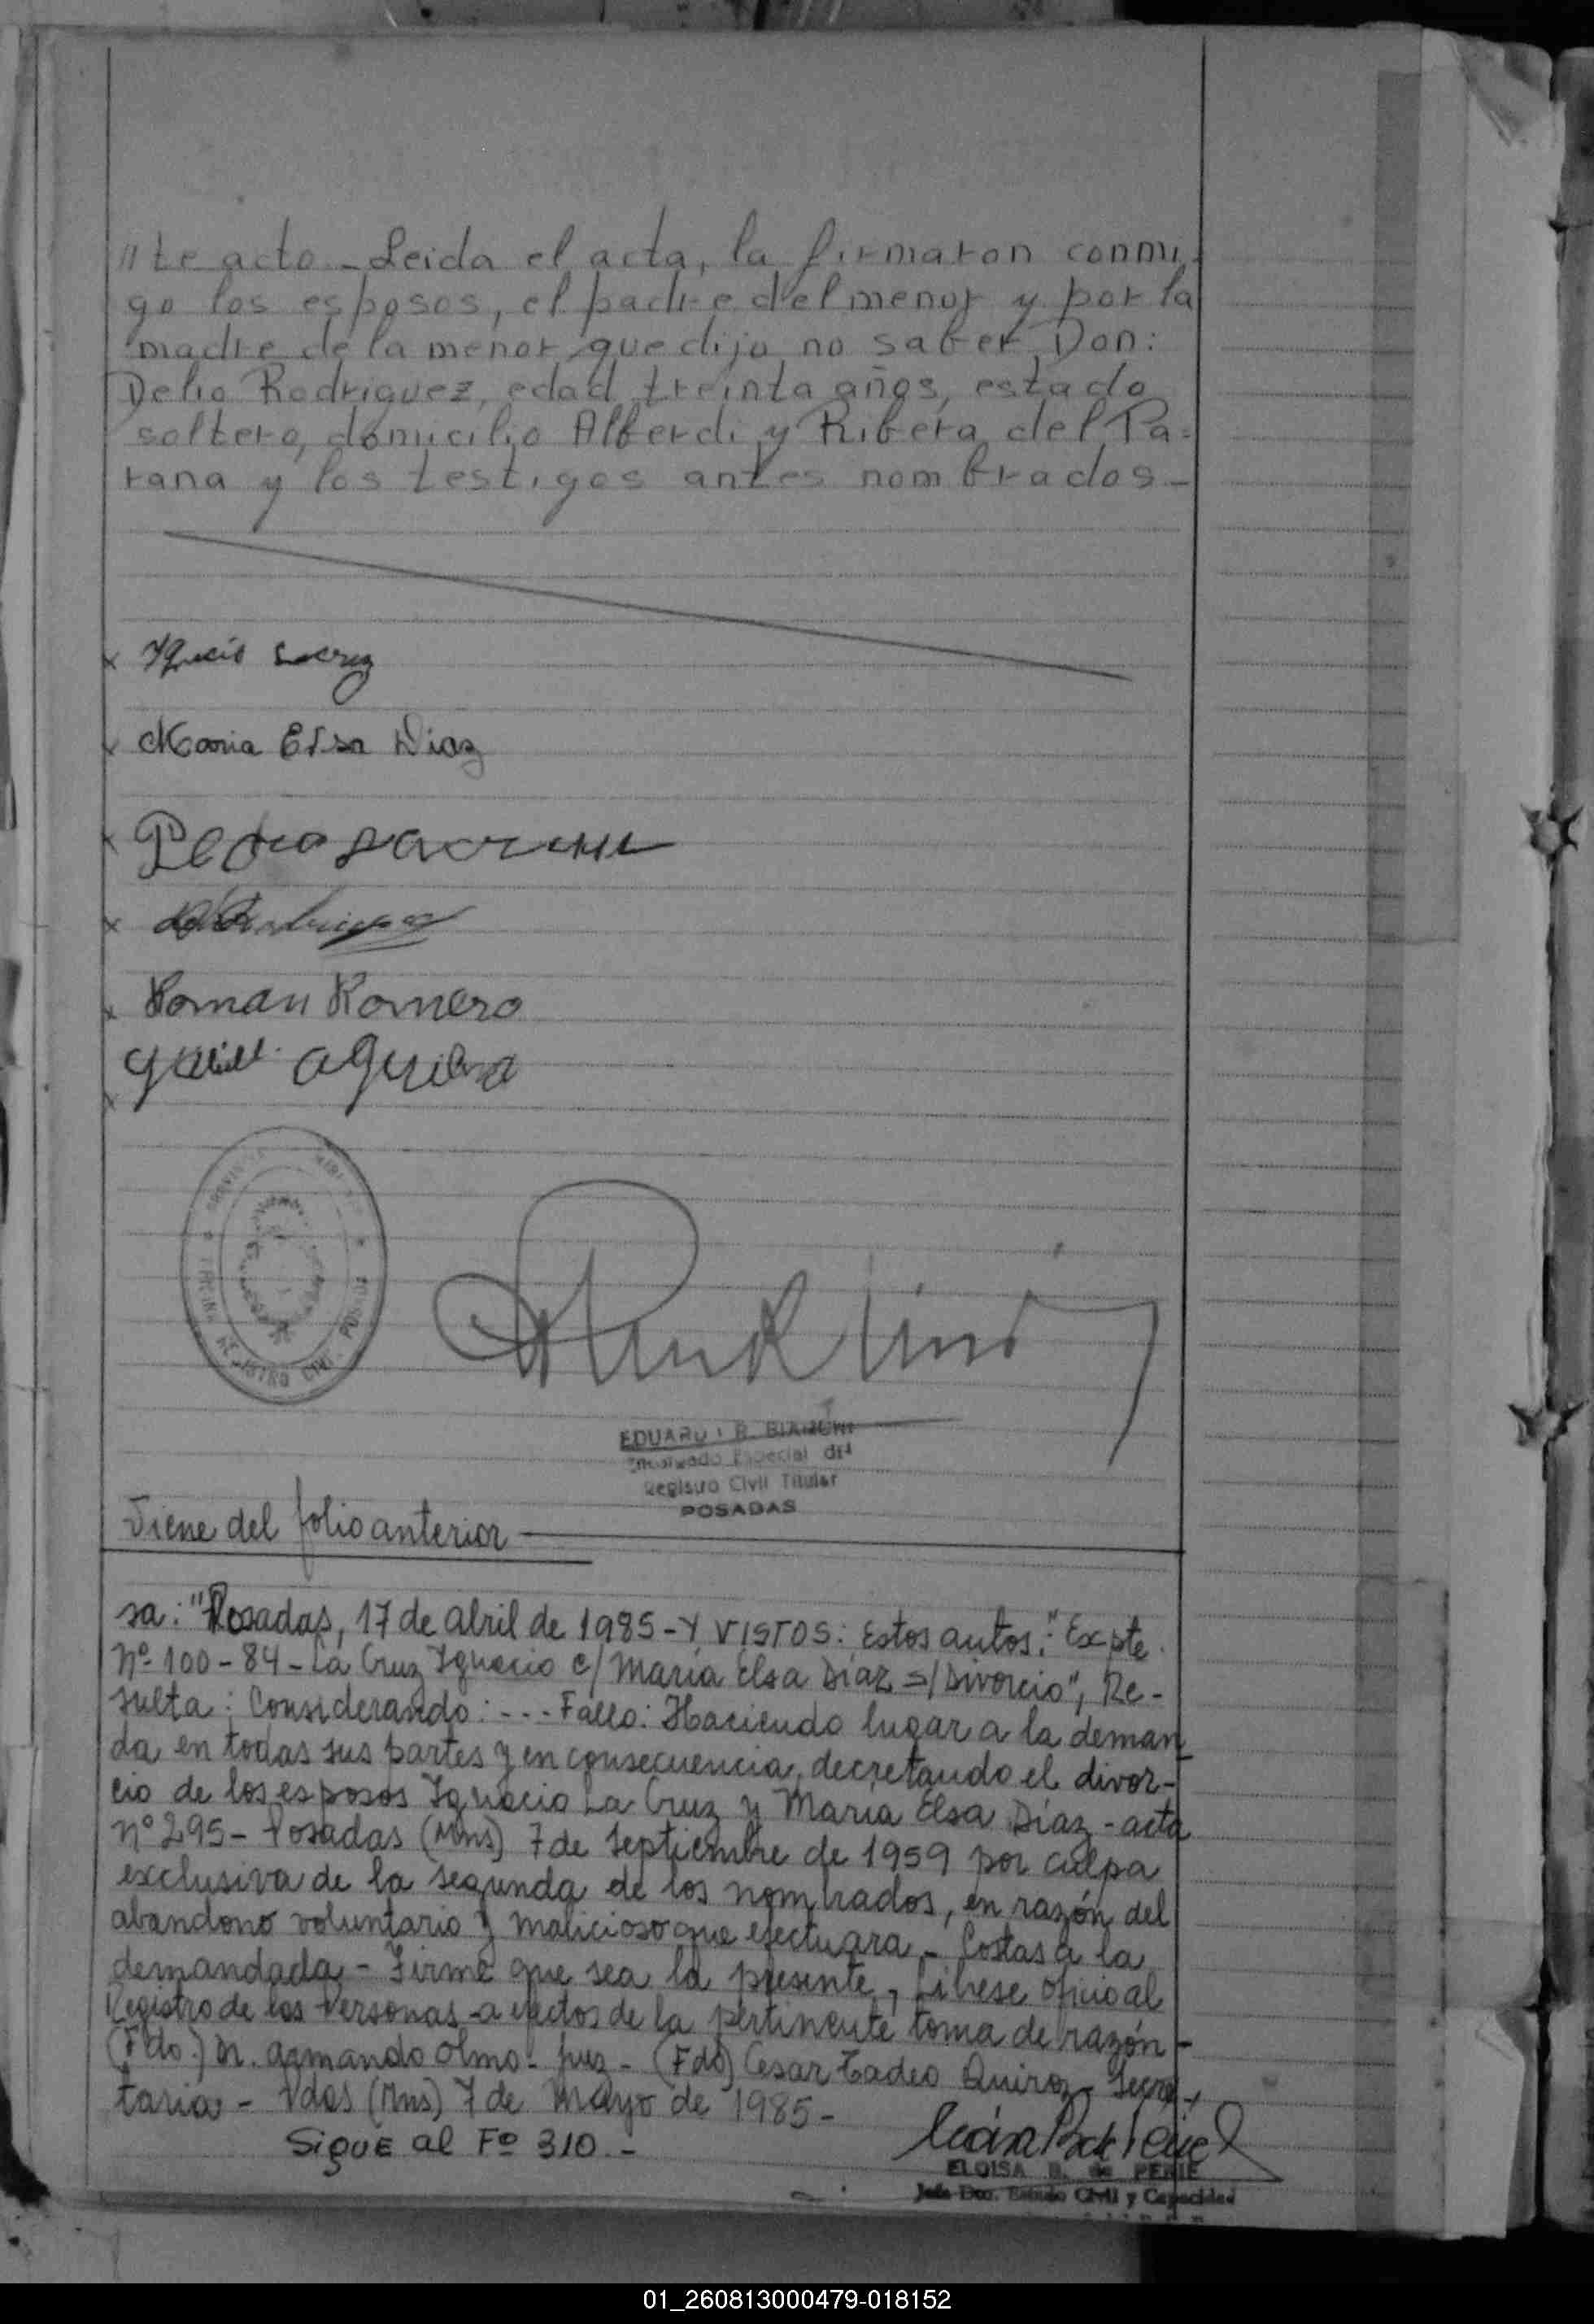 //te acto - Leida el acta, la firmaron conmi-
go los esposos, el padre del menor y por la
madre de la menor que dijo no saber, Don:
Delio Rodriguez, edad treinta años, estado
soltero, domicilio Alberdi y Ribera del Pa-
rana y los testigos antes nombrados -
Maria Elsa Diaz
Pedro
Roman Romero
Aguilera
REGISTRO CIVIL
EDUARDO R. BIANCHI
Encargado Especial del
Registro Civil Titular
POSADAS
Viene del folio anterior
sa: "Posadas, 17 de abril de 1985 - Y VISTOS: Estos autos: "Expte.
Nº 100-84 - La Cruz Ignacio c/ María Elsa Díaz s/ Divorcio", Re-
sulta: Considerando: --- Fallo: Haciendo lugar a la deman
da en todas sus partes y en consecuencia, decretando el divor-
cio de los esposos Ignacio La Cruz y María Elsa Díaz - acta
nº 295 - Posadas (Mns) 7 de septiembre de 1959 por culpa
exclusiva de la segunda de los nombrados, en razón del
abandono voluntario y malicioso que efectuara - Costas a la
demandada - Firme que sea la presente, Líbrese oficio al
Registro de las Personas a efectos de la pertinente toma de razón -
(Fdo.) Dr. Armando Olmo - Juez - (Fdo) Cesar Tadeo Quiroz - Secre-
taria - Pdas (Mns) 7 de Mayo de 1985 -
Sigue al Fº 310 -
ELOISA B. de PERIE
Jefe Dto. Estado Civil y Capacidad
01_260813000479-018152